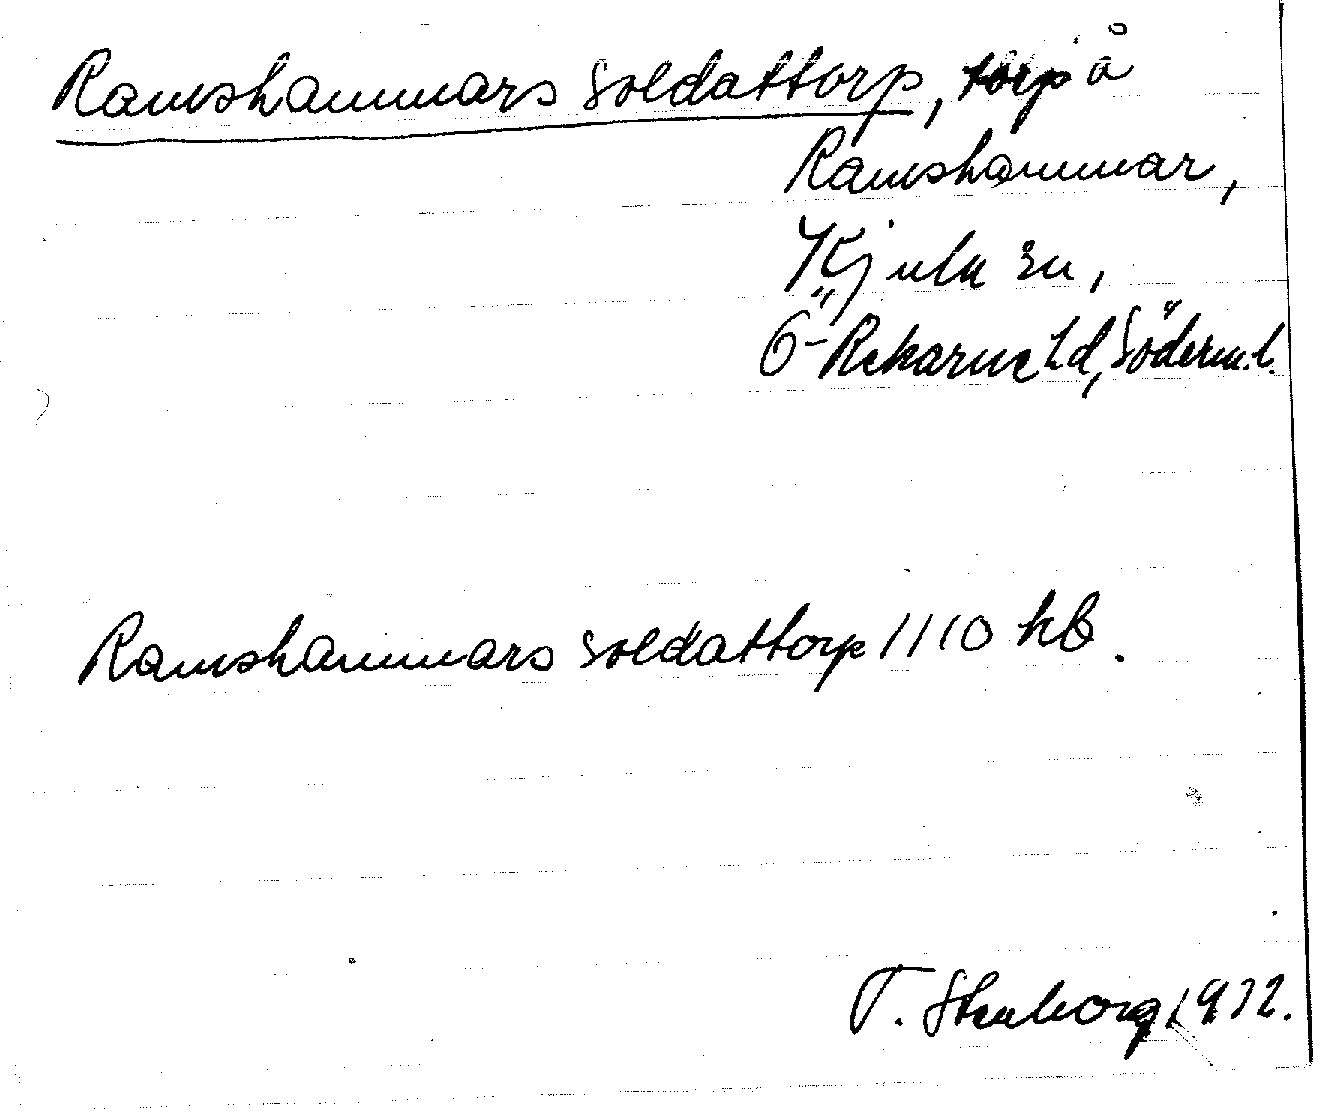 Ramshammars soldattorp, torp å
Ramshammar,
Kjula sn,
Ö-Rekarne hd, Söderm.l.
Ramshammars soldattorp 1110 hb.
T. Stenborg 1932.